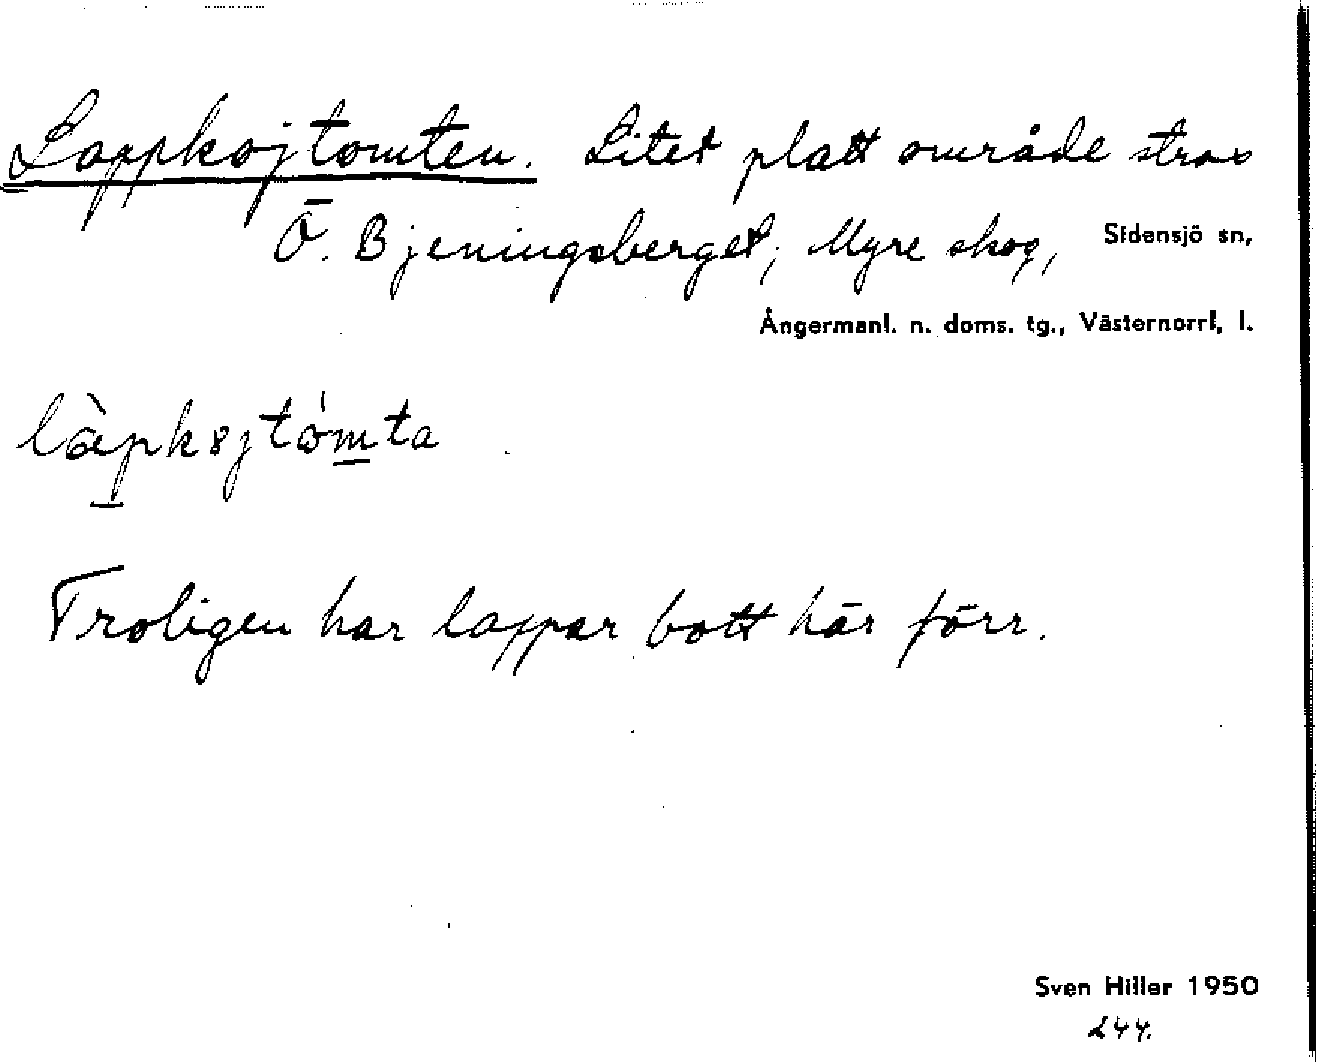 Lappkojtomten. Litet platt område strax
Ö. Bjeningsberget, Myre skog, Sidensjö sn,
Ångermanl. n. doms. tg., Västernorrl. l.
Troligen har lappar bott här förr.
Sven Hiller 1950
244.